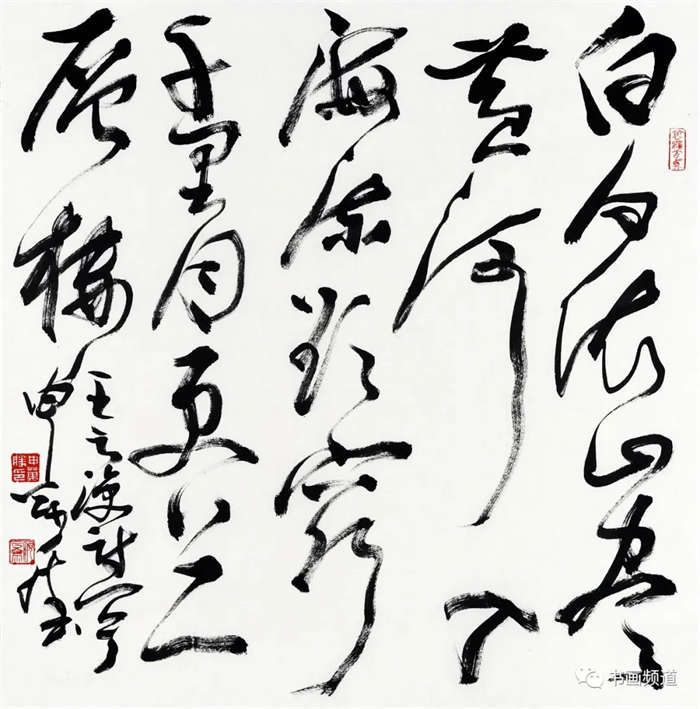 白日依山尽
黄河入
海流欲穷
千里目更上一
层楼
王之涣诗
申万胜
申萬勝印
书画频道